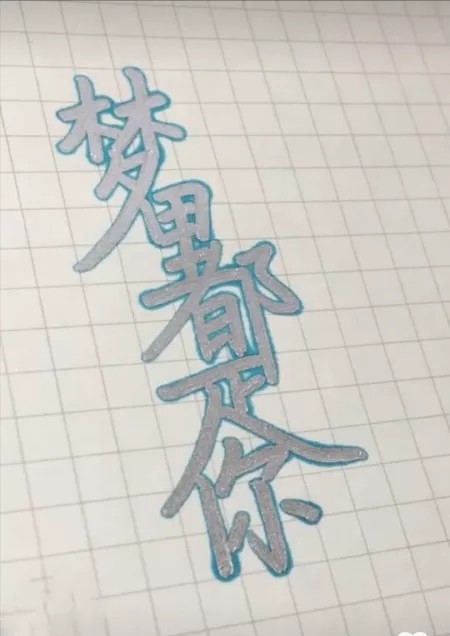 梦里都是你